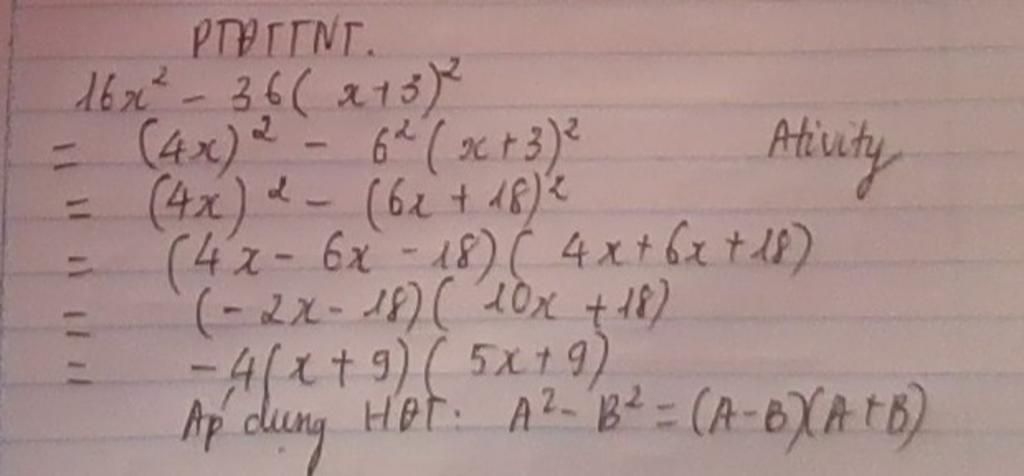 PTĐTTNT.
16x² - 36( x+3)²
= (4x)² - 6²(x+3)² Ativity
= (4x)² - (6x + 18)²
= (4x - 6x - 18)( 4x+6x+18)
= (-2x - 18)( 10x +18)
= -4(x+9)( 5x+9)
Áp dung HĐT: A² - B² = (A-B)(A+B)